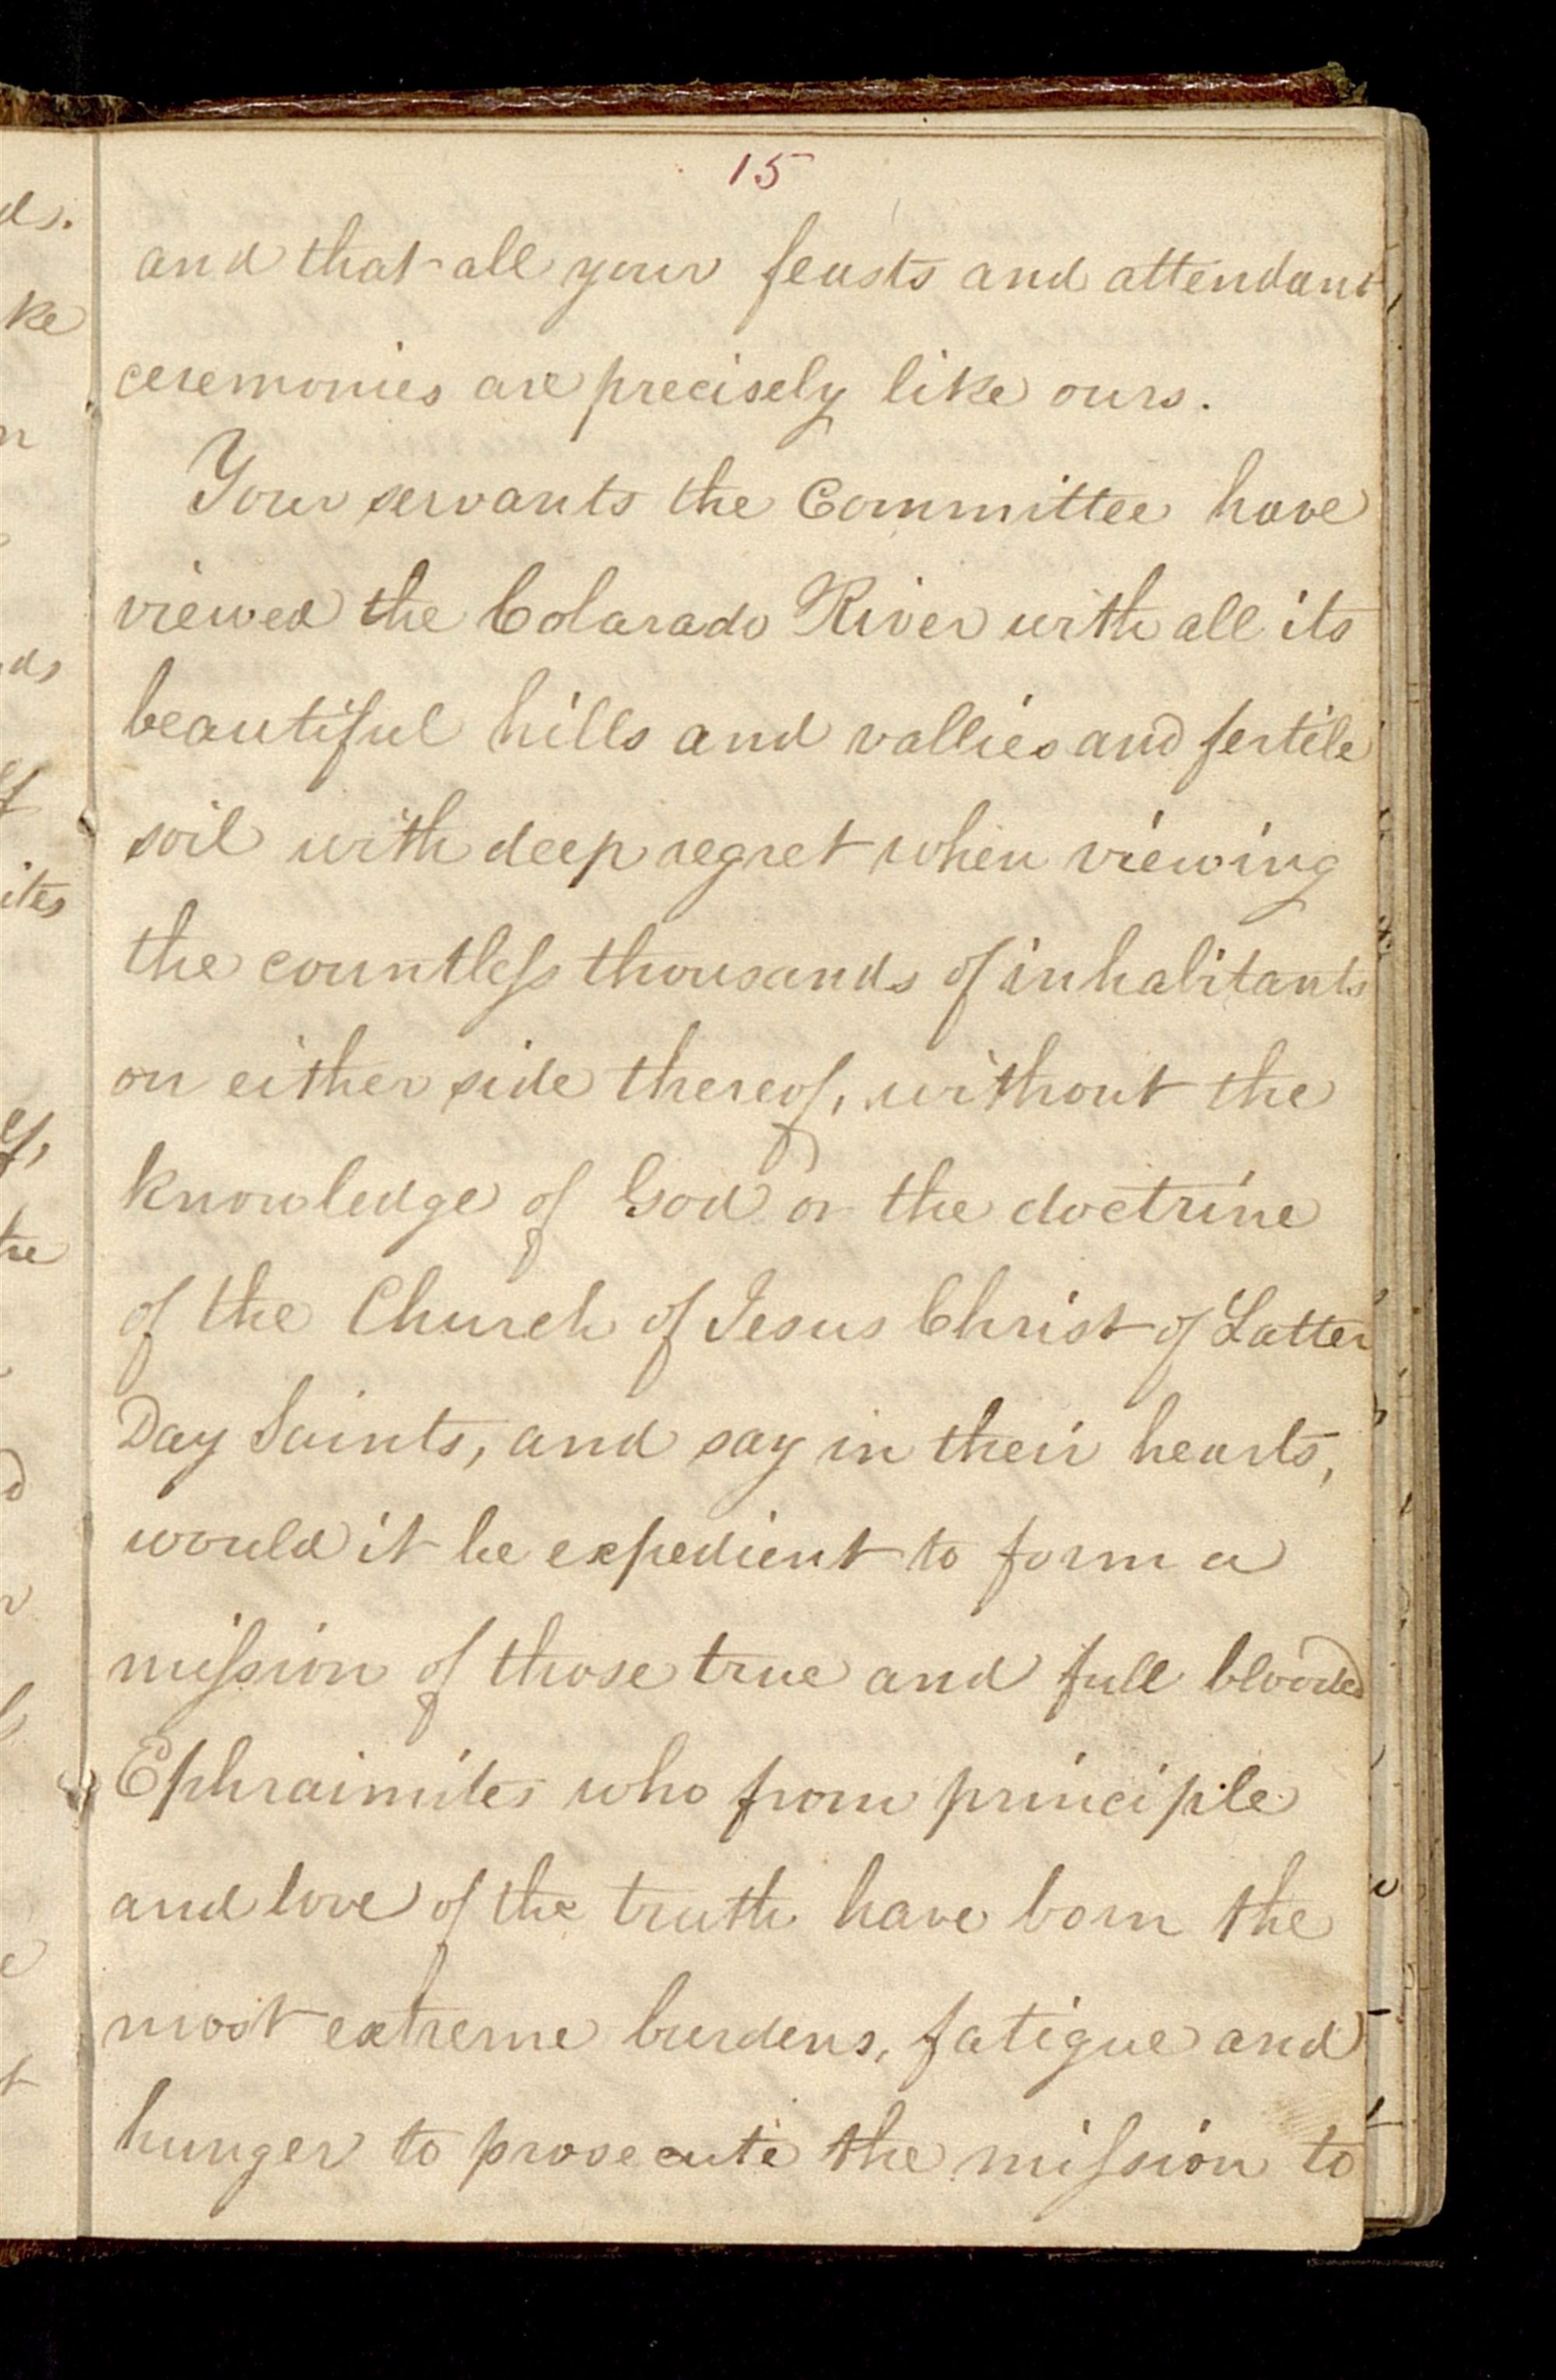 15
and that all your feasts and attendant
ceremonies are precisely like ours.
Your servants the Committee have
viewed the Colarado River with all its
beautiful hills and vallies and fertile
soil with deep regret when viewing
the countless thousands of inhabitants
on either side thereof, without the
knowledge of God or the doctrine
of the Church of Jesus Christ of Latter
Day Saints, and say in their hearts,
would it be expedient to form a
mission of those true and full blooded
Ephraimites who from principle
and love of the truth have born the
most extreme burdens, fatigue and
hunger to prosecute the mission to